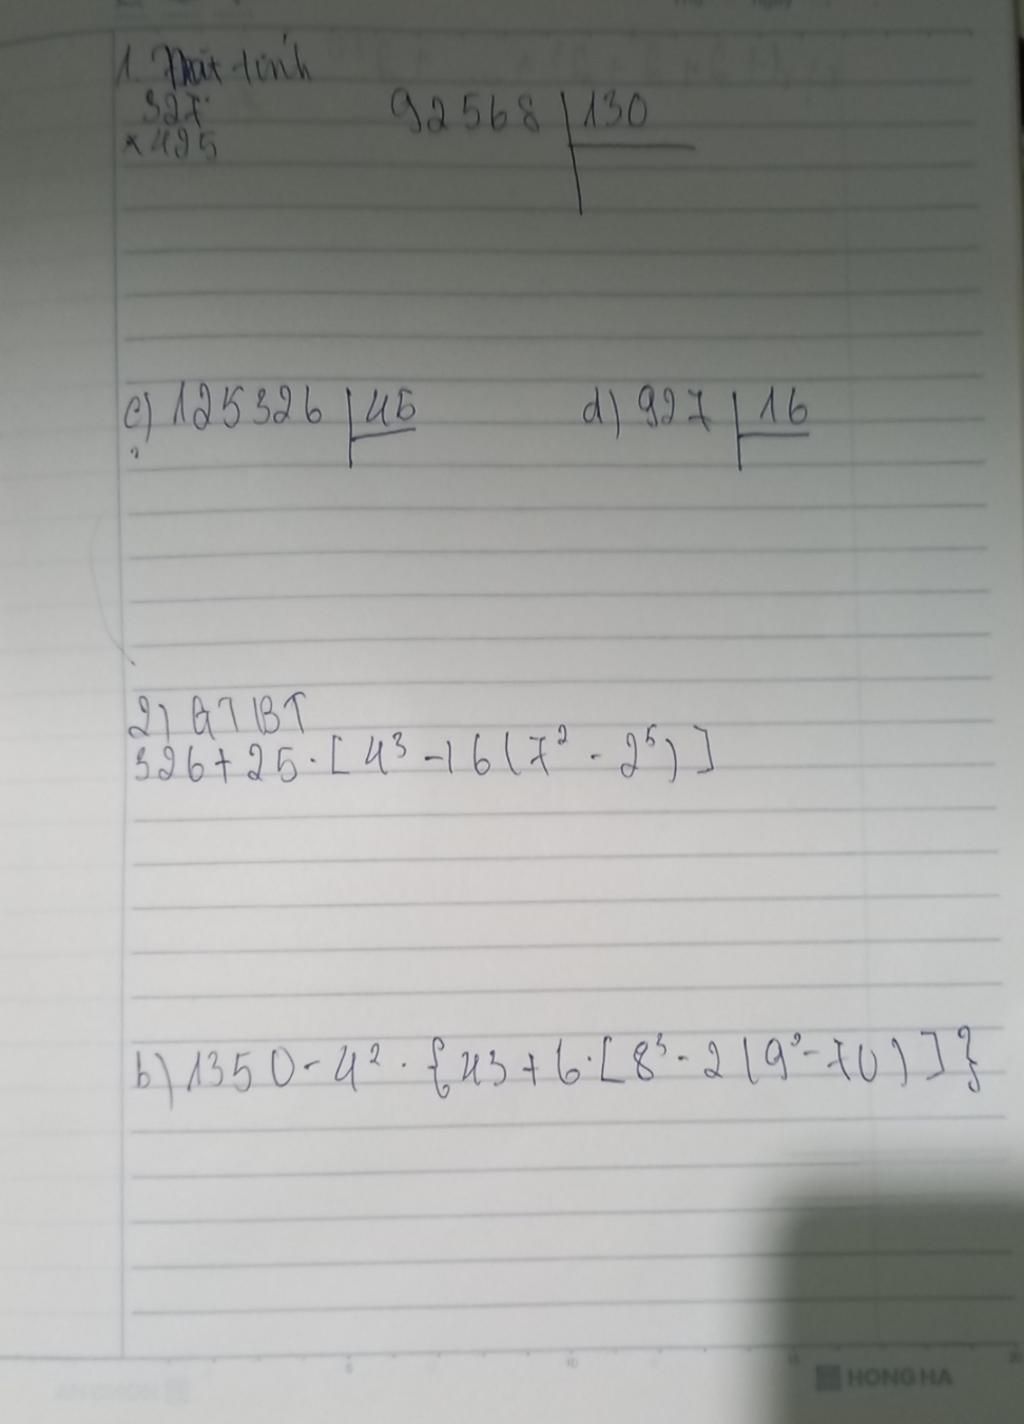 1. Đặt tính
327
× 495
92568 | 130
c) 125326 | 45
d) 927 | 16
2) GTBT
326 + 25 · [ 4³ - 16 ( 7² - 2⁵ ) ]
b) 1350 - 4² · { 43 + 6 · [ 8³ - 2 ( 9² - 70 ) ] }
HONG HA